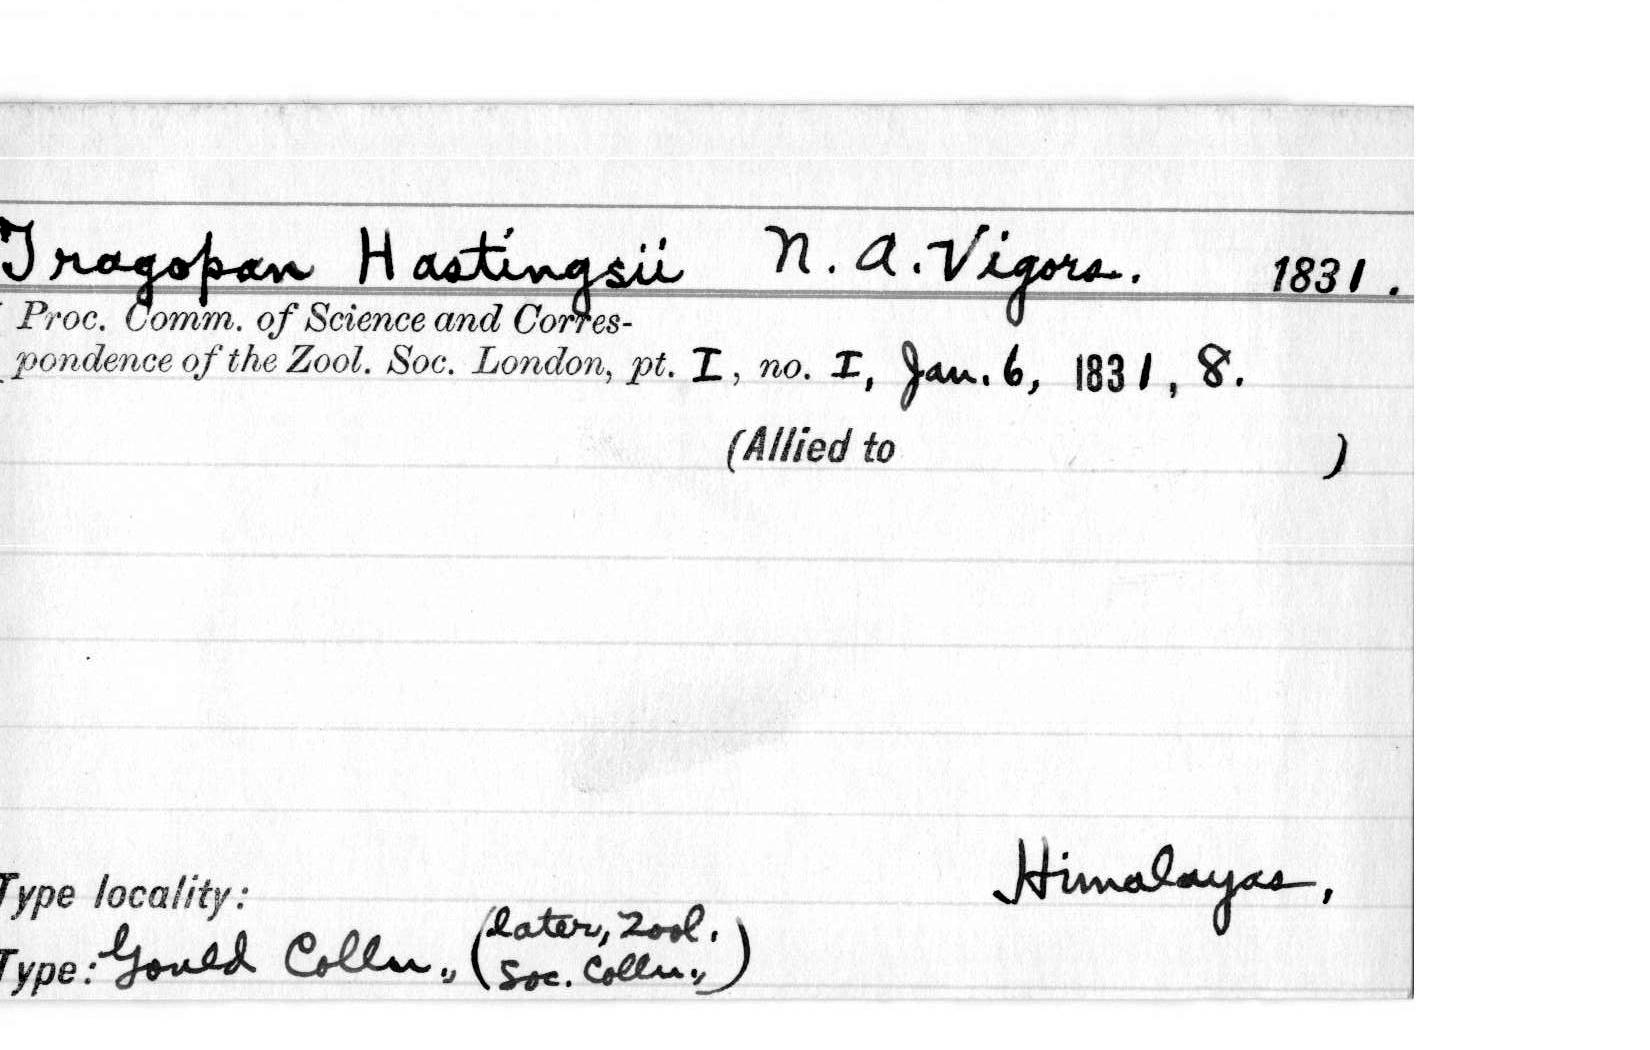 Tragopan Hastingsii N. A. Vigors. 1831.
Proc. Comm. of Science and Corres-
pondence of the Zool. Soc. London, pt. I, no. I, Jan. 6, 1831, 8.
(Allied to )
Himalayas,
Type locality:
Type: Gould Colln., (later, Zool.
Soc. Colln.,)